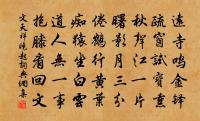 遠寺鳴金鐸
疏窗試寶熏
秋聲江一片
曙影月三分
倦鶴行黄葉
痴猿坐白雲
道人無一事
抱膝看回文
文天祥晓起詞典網集